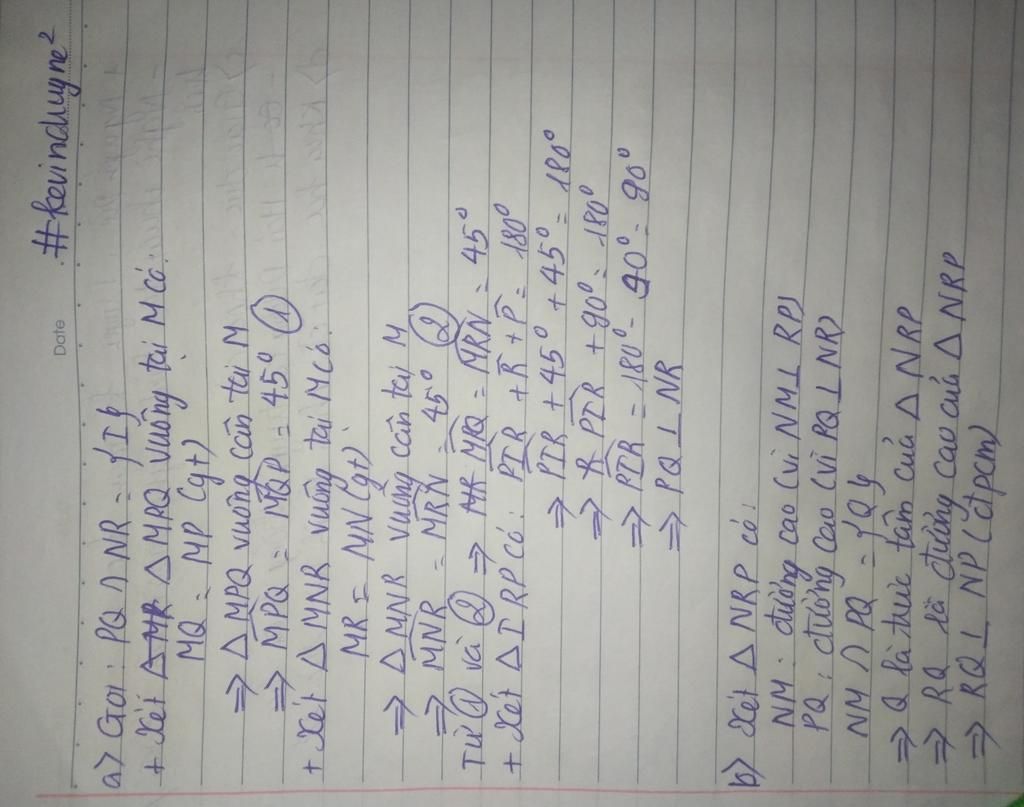 Date
#kevinchuyne²
a) Gọi: PQ ∩ NR = {I}
+ Xét ΔMR ΔMPQ vuông tại M có:
MQ = MP (gt)
⇒ ΔMPQ vuông cân tại M
⇒ MPQ = MQP = 45° ①
+ Xét ΔMNR vuông tại M có:
MR = MN (gt)
⇒ ΔMNR vuông cân tại M
⇒ MNR = MRN = 45° ②
Từ ① và ② ⇒ MR MRQ = MRN = 45°
+ Xét ΔIRP có: PIR + R + P = 180°
⇒ PIR + 45° + 45° = 180°
⇒ R PIR + 90° = 180°
⇒ PIR = 180° - 90° = 90°
⇒ PQ ⊥ NR
b) Xét ΔNRP có:
NM: đường cao (vì NM ⊥ RP)
PQ: đường cao (vì PQ ⊥ NR)
NM ∩ PQ = {Q}
⇒ Q là trực tâm của ΔNRP
⇒ RQ là đường cao của ΔNRP
⇒ RQ ⊥ NP (đpcm)